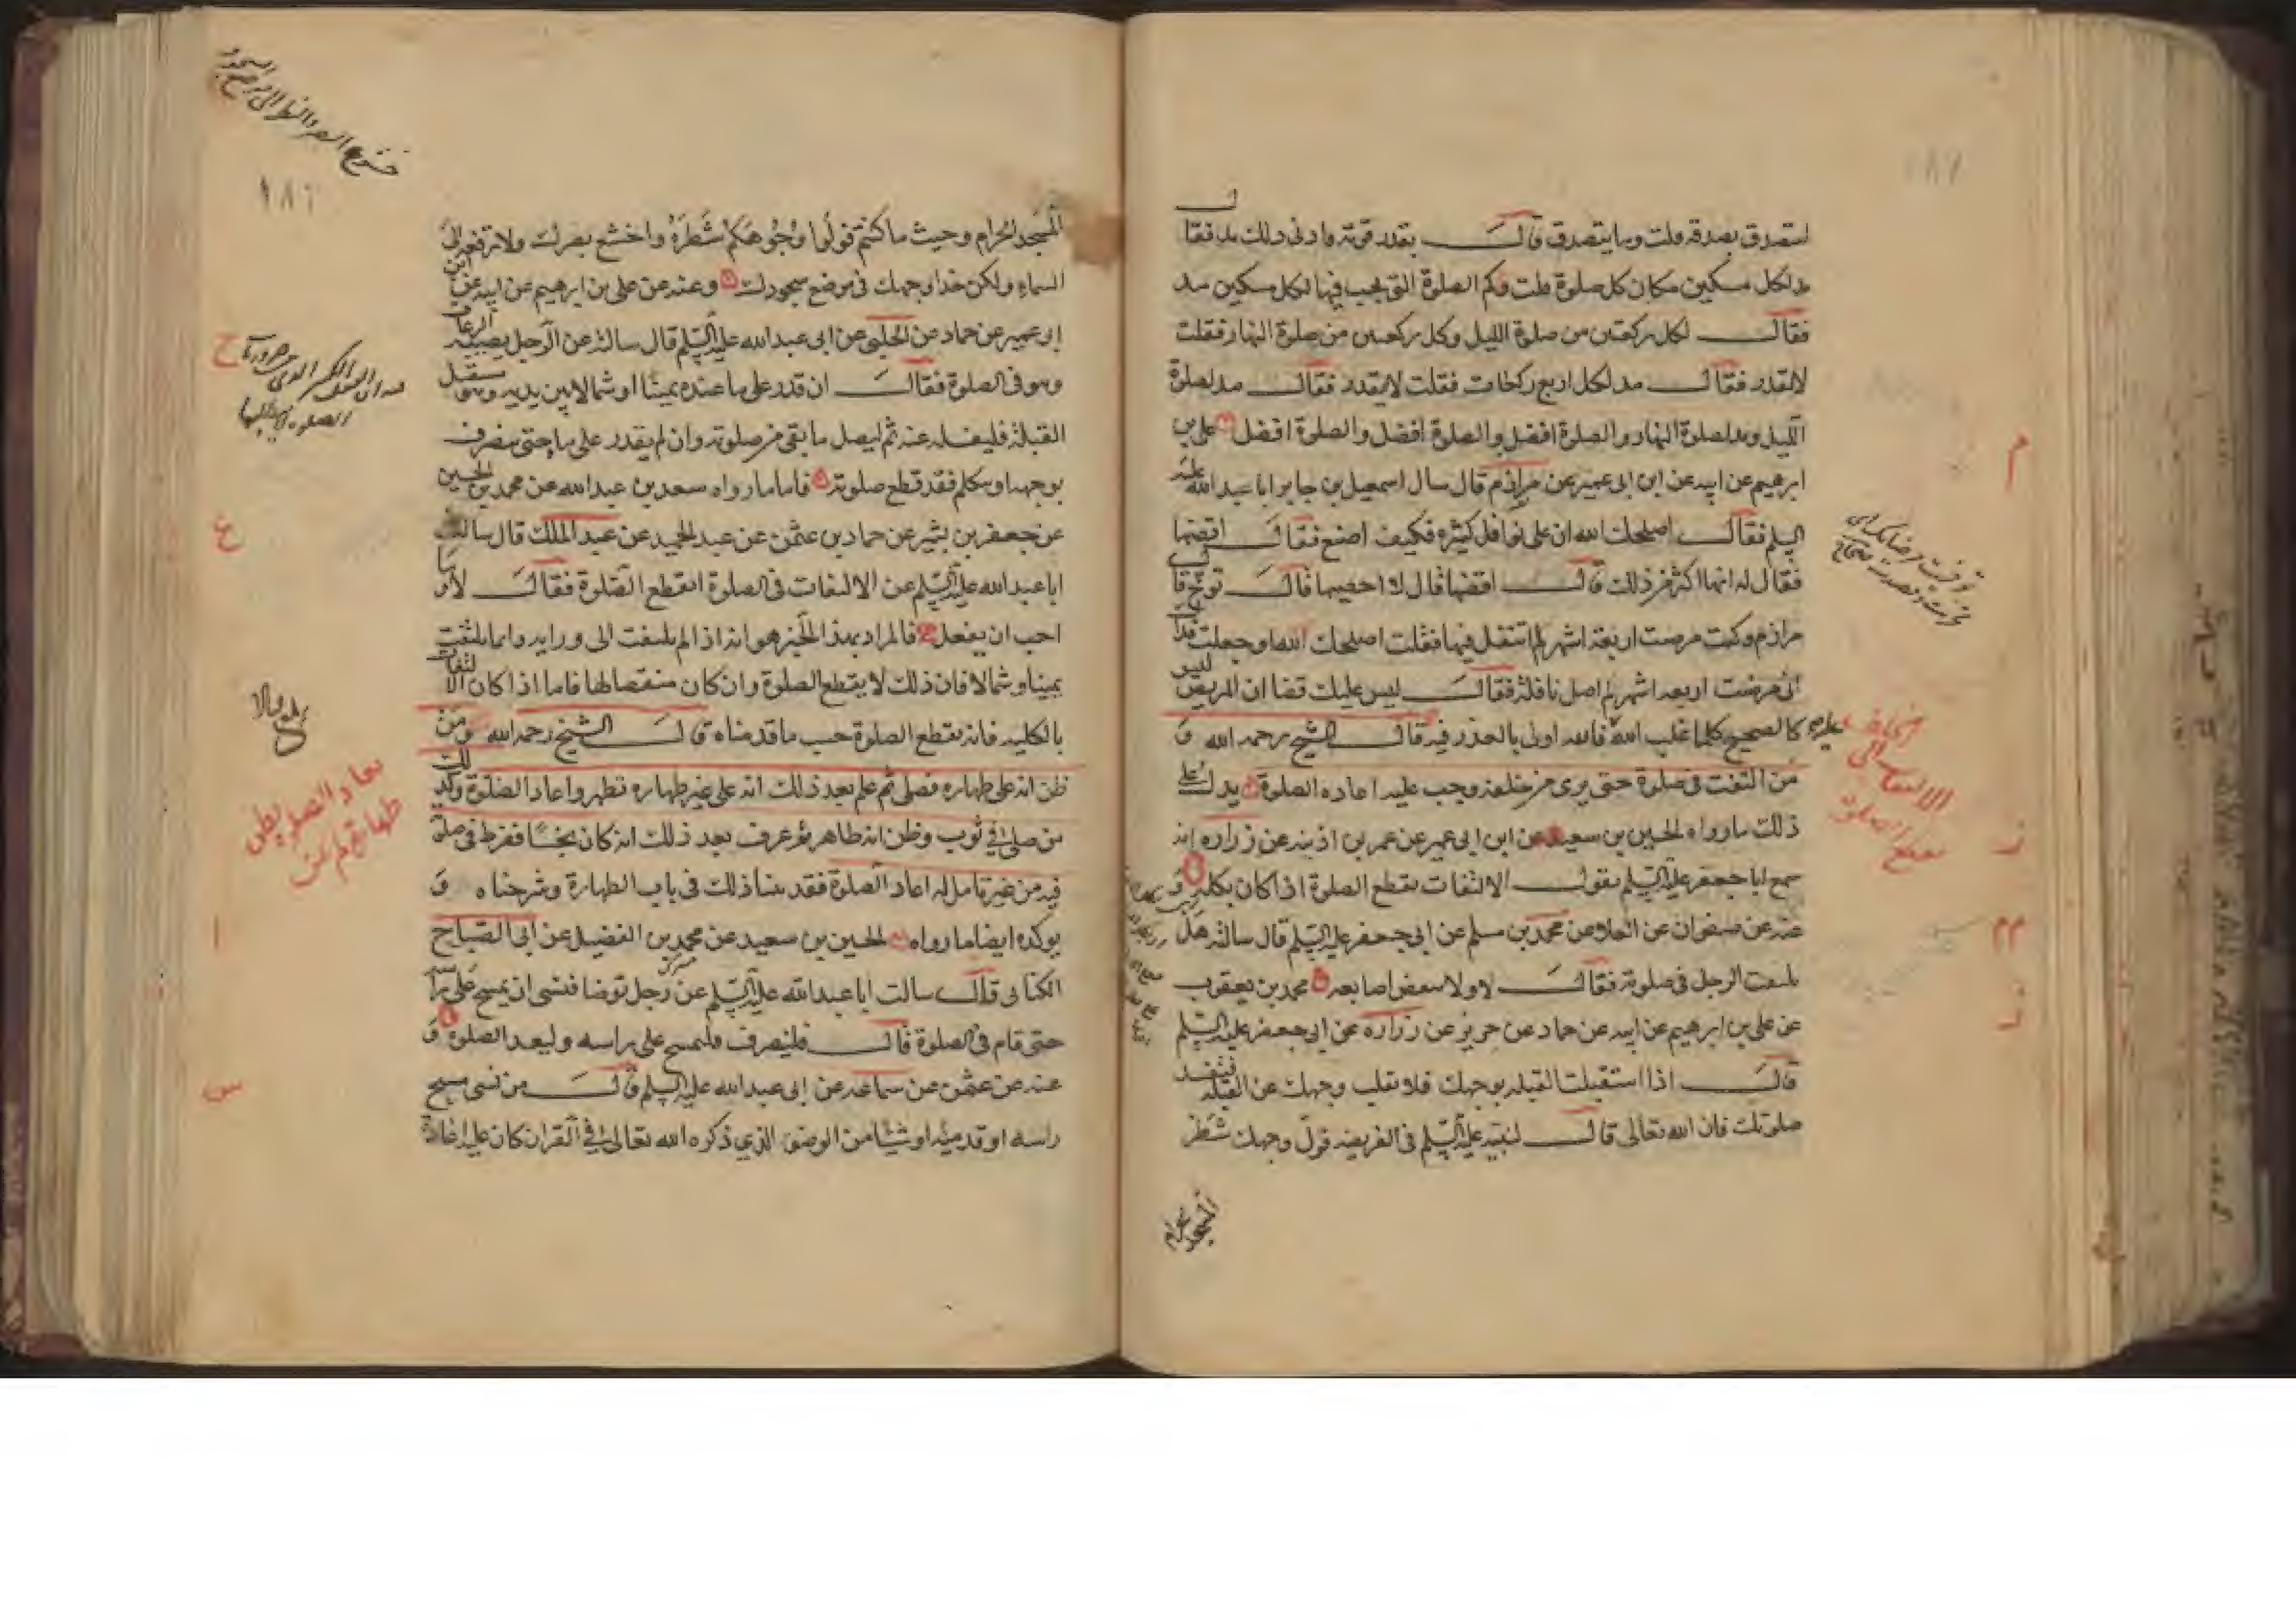 استصدق بصدقة قلت وما يتصدق قال بقدر قوته وادنى ذلك مد فقال
مد لكل مسكين مكان كل صلوة قلت وكم الصلوة التى يجب فيها لكل مسكين مد
فقال لكل ركعتين من صلوة الليل وكل ركعتين من صلوة النهار فقلت
لا يقدر فقال مد لكل اربع ركعات فقلت لا يقدر فقال مد لصلوة
الليل ومد لصلوة النهار والصلوة افضل والصلوة افضل والصلوة افضل على بن
ابرهيم عن ابيه عن ابن ابى عمير عن مرازم قال سال اسمعيل بن جابر ابا عبد الله عليه
السلم فقال اصلحك الله ان على نوافل كثيرة فكيف اصنع فقال اقضها
فقال له انها اكثر من ذلك قال اقضها قال لا احصيها قال توخ قال
مرازم وكنت مرضت اربعة اشهر لم اتنفل فيها فقلت اصلحك الله وجعلت فداك
انى مرضت اربعة اشهر لم اصل نافلة فقال ليس عليك قضا ان المريض ليس
كالصحيح كلما غلب الله عليه فالله اولى بالعذر فيه قال الشيخ رحمه الله و
من التفت فى صلوة حتى يرى من خلفه وجب عليه اعاده الصلوة يدل على
ذلك ما رواه الحسين بن سعيد عن ابن ابى عمير عن عمر بن اذينه عن زراره انه
سمع ابا جعفر عليه السلم يقول الالتفات يقطع الصلوة اذا كان بكله و
عنه عن صفوان عن العلا عن محمد بن مسلم عن ابى جعفر عليه السلم قال سالته هل
يلتفت الرجل فى صلوته فقال لا ولا ينقض اصابعه محمد بن يعقوب
عن على بن ابرهيم عن ابيه عن حماد عن حريز عن زراره عن ابى جعفر عليه السلم
قال اذا استقبلت القبله بوجهك فلا تقلب وجهك عن القبله فتفسد
صلوتك فان الله تعالى قال لنبيه عليه السلم فى الفريضه فول وجهك شطر
المسجد الحرام
الالتفات الى
يقطع الصلوة
المسجد الحرام وحيث ما كنتم فولوا وجوهكم شطره واخشع بصرك ولا ترفعه الى
السماء ولكن حذا وجهك فى موضع سجودك وعنه عن على بن ابرهيم عن ابيه عن ابن
ابى عمير عن حماد عن الحلبى عن ابى عبد الله عليه السلم قال سالته عن الرجل يصيبه الرعاف
وهو فى الصلوة فقال ان قدر على ما عنده يمينا او شمالا بين يديه وهو مستقبل
القبلة فليغسله عنه ثم ليصل ما بقى من صلوته وان لم يقدر على ما حتى ينصرف
بوجهه او يتكلم فقد قطع صلوته فاما ما رواه سعد بن عبد الله عن محمد بن الحسين
عن جعفر بن بشير عن حماد بن عثمن عن عبد الحميد عن عبد الملك قال سالت
ابا عبد الله عليه السلم عن الالتفات فى الصلوة ايقطع الصلوة فقال لا وما
احب ان يفعل فالمراد بهذا الخبر هو انه اذا لم يلتفت الى ورايه وانما يلتفت
يمينا وشمالا فان ذلك لا يقطع الصلوة وان كان منقصا لها فاما اذا كان الالتفات
بالكليه فانه يقطع الصلوة حسب ما قدمناه قال الشيخ رحمه الله ومن
ظن انه على طهاره فصلى ثم علم بعد ذلك انه على غير طهاره تطهر واعاد الصلوة وكذلك
من صلى فى ثوب وظن انه طاهر ثم عرف بعد ذلك انه كان نجسا ففرط فى صلوته
فيه من غير تامل له اعاد الصلوة فقد بينا ذلك فى باب الطهارة وشرحناه و
يوكده ايضا ما رواه الحسين بن سعيد عن محمد بن الفضيل عن ابى الصباح
الكنانى قال سالت ابا عبد الله عليه السلم عن رجل توضا فنسى ان يمسح على راسه
حتى قام فى الصلوة قال فلينصرف فليمسح على راسه وليعد الصلوة و
عنه عن عثمن عن سماعه عن ابى عبد الله عليه السلم قال من نسى مسح
راسه او قدميه او شيئا من الوضوء الذى ذكره الله تعالى فى القران كان عليه اعادة
خشوع البصر والنظر الى موضع السجود
١٨٦